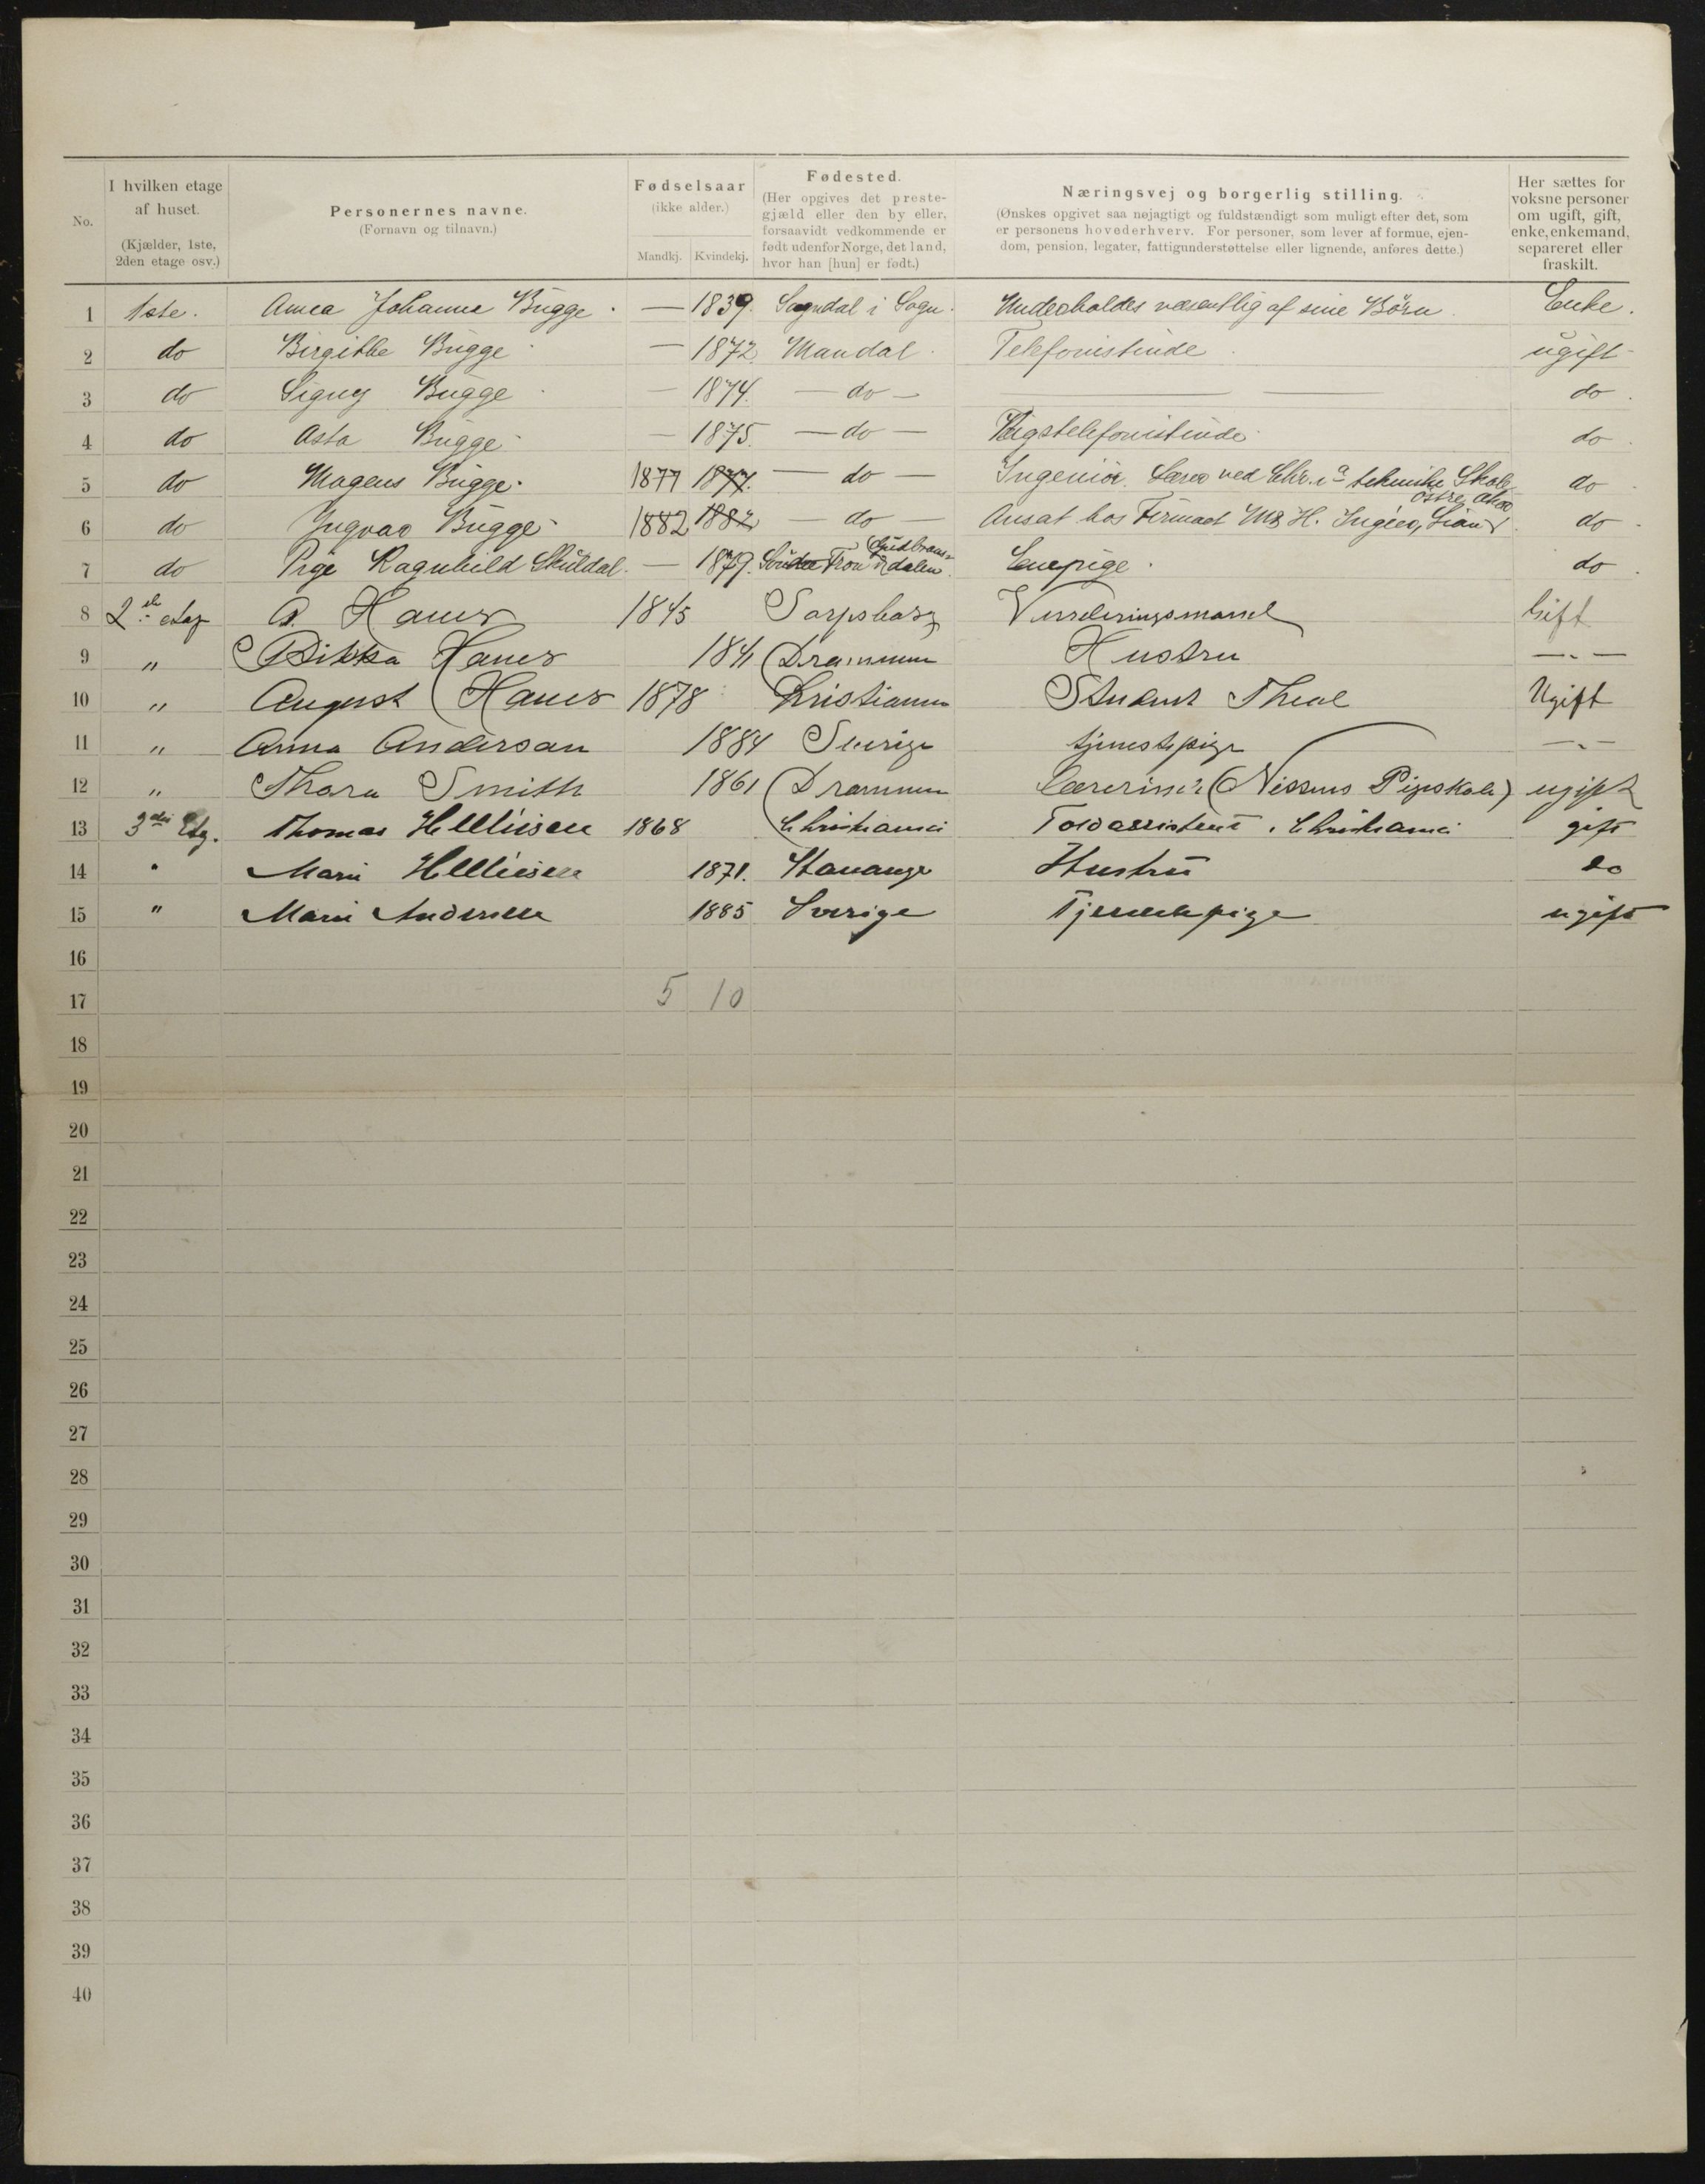 No. I hvilken etage af huset. (Kjælder, 1ste, 2den etage osv.) Personernes navne. (Fornavn og tilnavn.) Fødselsaar (ikke alder.) Mandkj. Kvindekj. Fødested. (Her opgives det prestegjæld eller den by eller, forsaavidt vedkommende er født udenfor Norge, det land, hvor han [hun] er født.) Næringsvej og borgerlig stilling. (Ønskes opgivet saa nøjagtigt og fuldstændigt som muligt efter det, som er personens hovederhverv. For personer, som lever af formue, ejendom, pension, legater, fattigunderstøttelse eller lignende, anføres dette.) Her sættes for voksne personer om ugift, gift, enke, enkemand, separeret eller fraskilt.
1 1ste. Anna Johanna Bugge — 1839. Sogndal i Sogn. Underholdes væsentlig af sine Børn Enke.
2 do Birgitte Bugge — 1872. Mandal. Telefonistinde ugift
3 do Signy Bugge — 1874. — do — — — do
4 do Asta Bugge — 1875. — do — Rigstelefonistinde do
5 do Mogens Bugge 1877 1877. — do — Ingeniør. Lærer ved Chr.ia tekniske Skole do
6 do Yngvar Bugge 1882 1882 — do — Ansat hos Firmaet H. do
7 do Pige Ragnhild Skuldal. — 1879. Søndre Fron i Gudbrandsdalen Enepige do
8 2 etag A. Hauer 1845 Sarpsborg Vurderingsmand Gift
9 " Rikka Hauer 1841 Drammen Hustru — " —
10 " August Hauer 1878 Kristiania Student Theol Ugift
11 " Anna Anderson 1884 Sverige tjenestepige — " —
12 " Thora Smith 1861 Drammen Lærerinde (Nissens Pigeskole) ugift
13 3die Etg. Thomas Helliesen 1868 Christiania Toldassistent i Christiania gift
14 " Marie Helliesen 1871. Stavanger Hustru do
15 " Marie Andersen 1885 Sverige Tjenestepige ugift
16
17 5 10
18
19
20
21
22
23
24
25
26
27
28
29
30
31
32
33
34
35
36
37
38
39
40